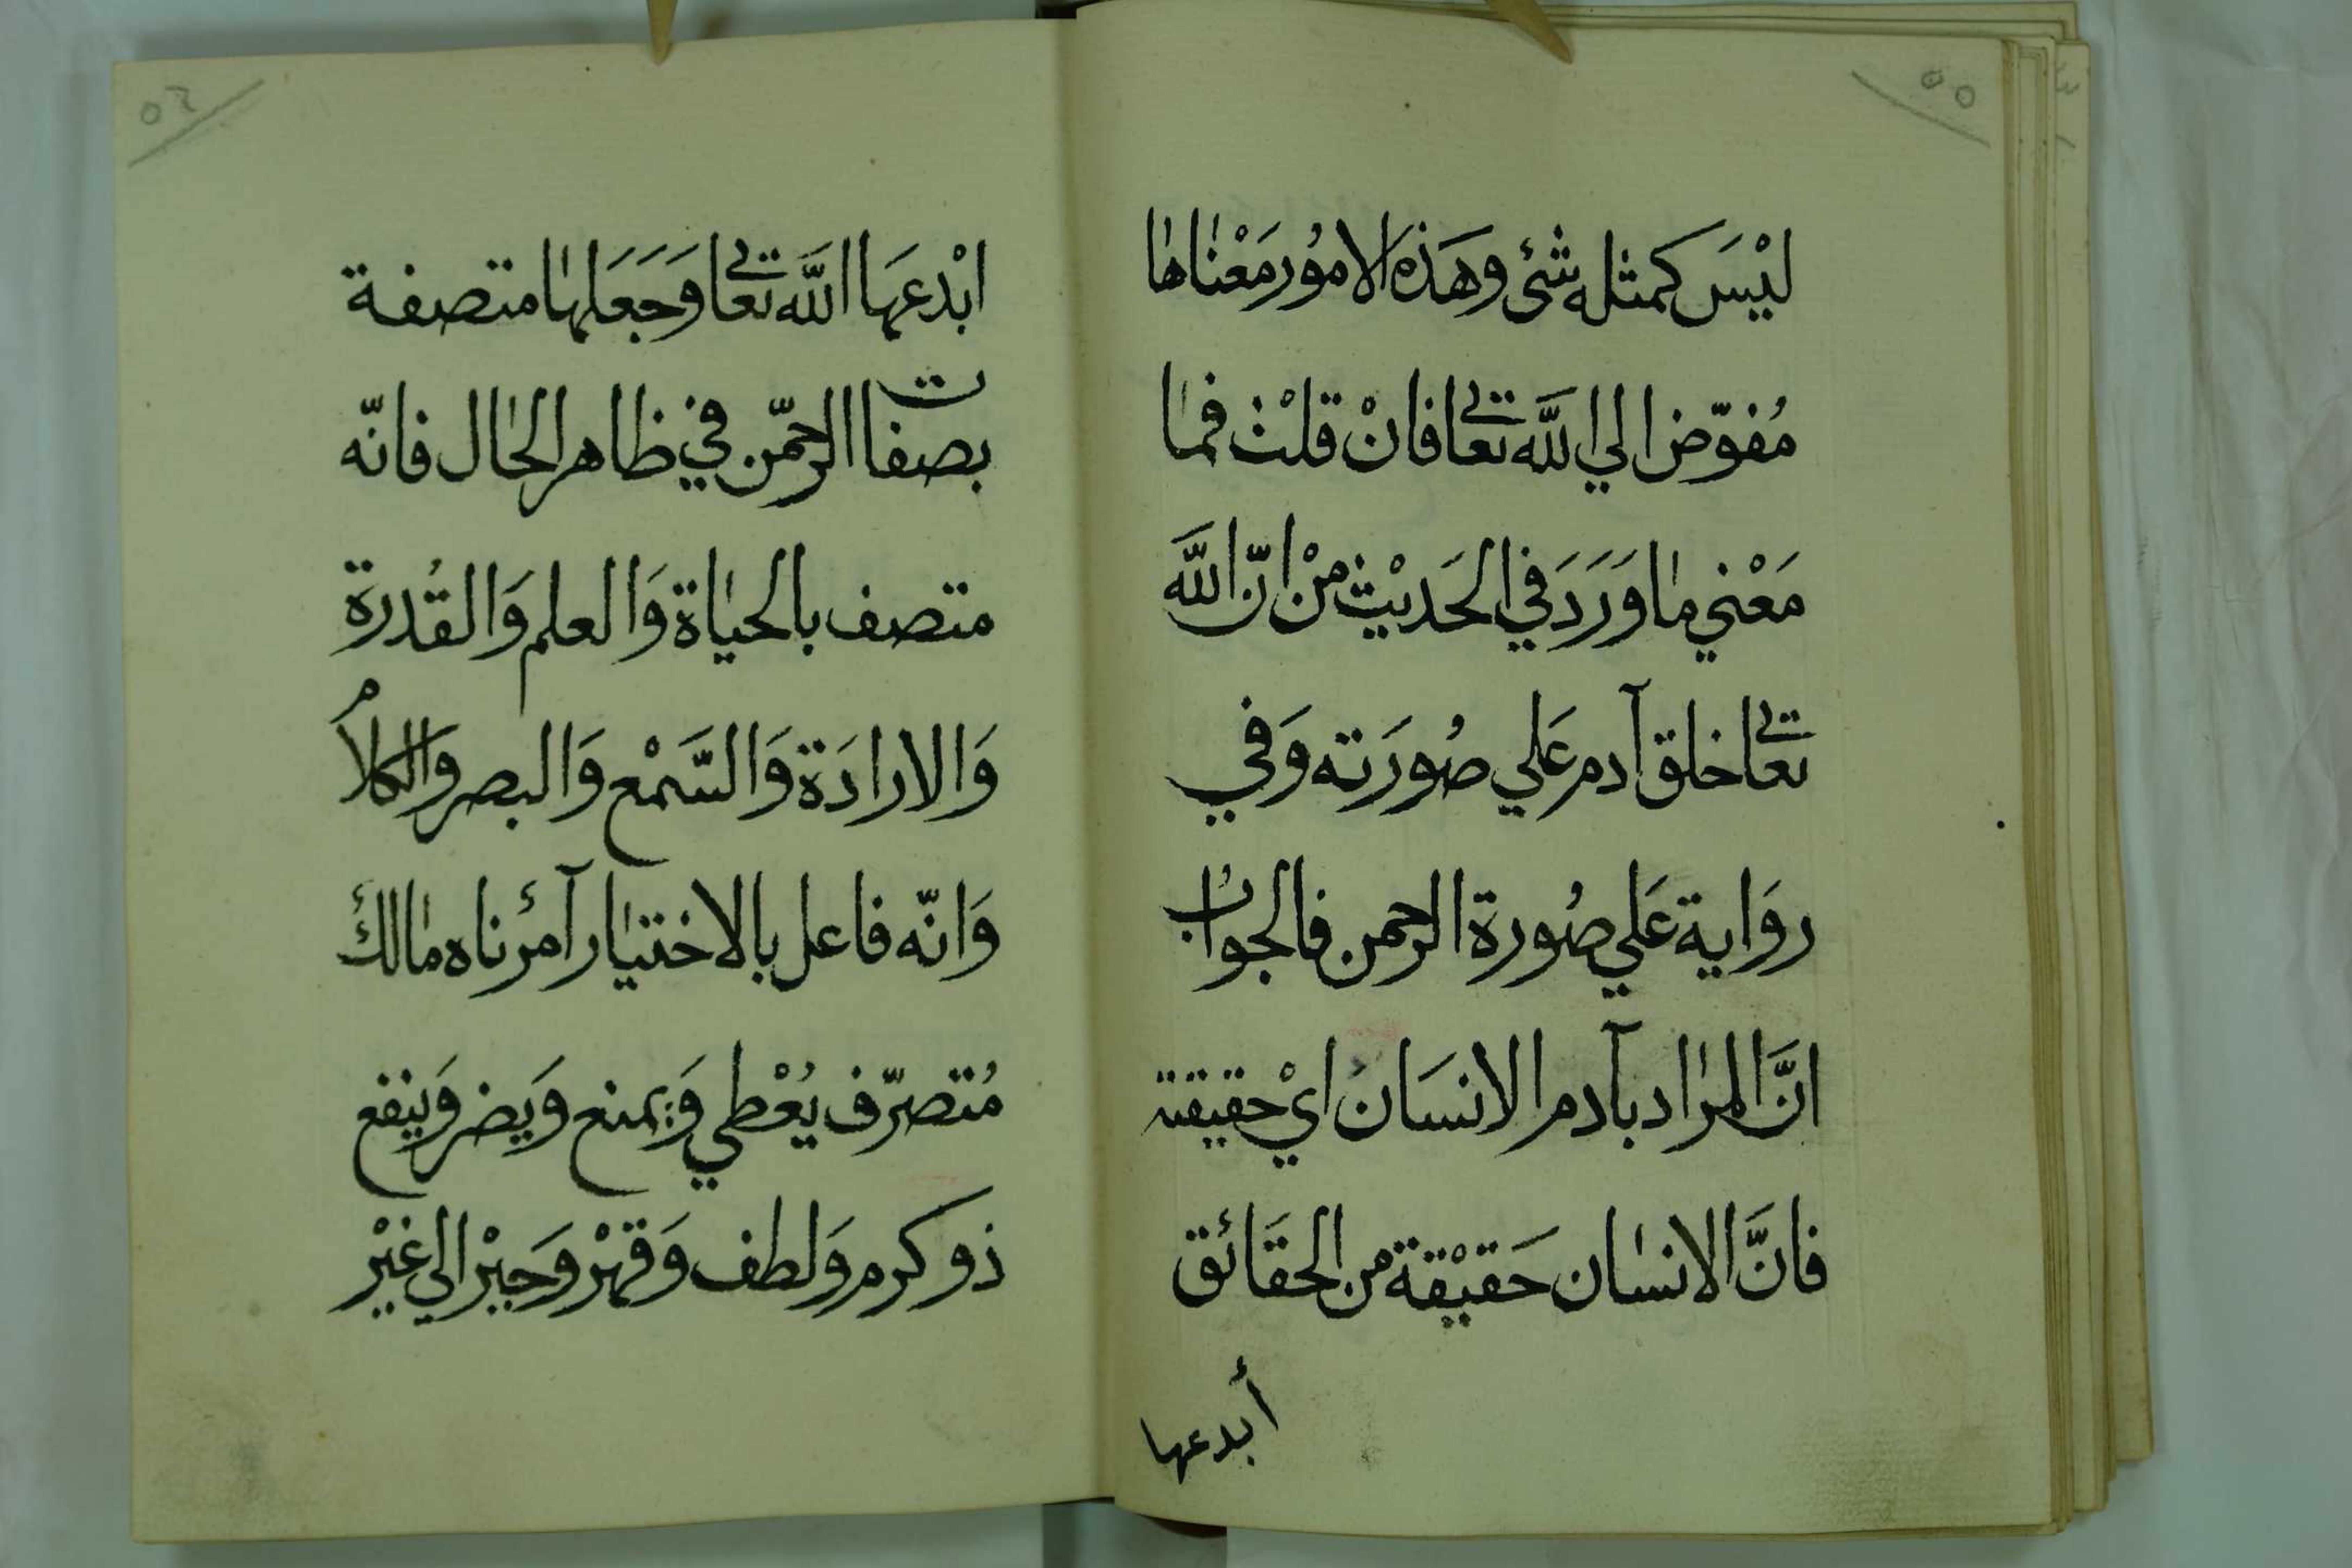 ٥٥
لَيْسَ كمثله شئ وهَذه الامُور مَعْناها
مُفوّض الي الله تعالي فانْ قلتْ فما
مَعْني ما وَرَدَ في الحَديْث منْ انّ الله
تعالي خلق آدم عَلي صُورَته وَفي
روَاية عَلي صُورة الرحمن فالجوابُ
انَّ المراد بآدم الانسَان ايْ حقيقته
فانَّ الانسان حَقيْقة من الحقَائق
أبدعها
ابْدعهَا الله تعالي وَجَعَلها متصفة
بصفات الرحمّن في ظاهر الحال فانّه
متصف بالحياة وَالعلم وَالقُدرة
وَالارادَة وَالسَّمْع وَالبصر والكلامُ
وَانّه فاعل بالاختيار آمرُ ناه مالكُ
مُتصرّف يُعْطي وَيمنع وَيضر وَينفع
ذو كرم وَلطف وَقهْر وَجبْر الي غيْر